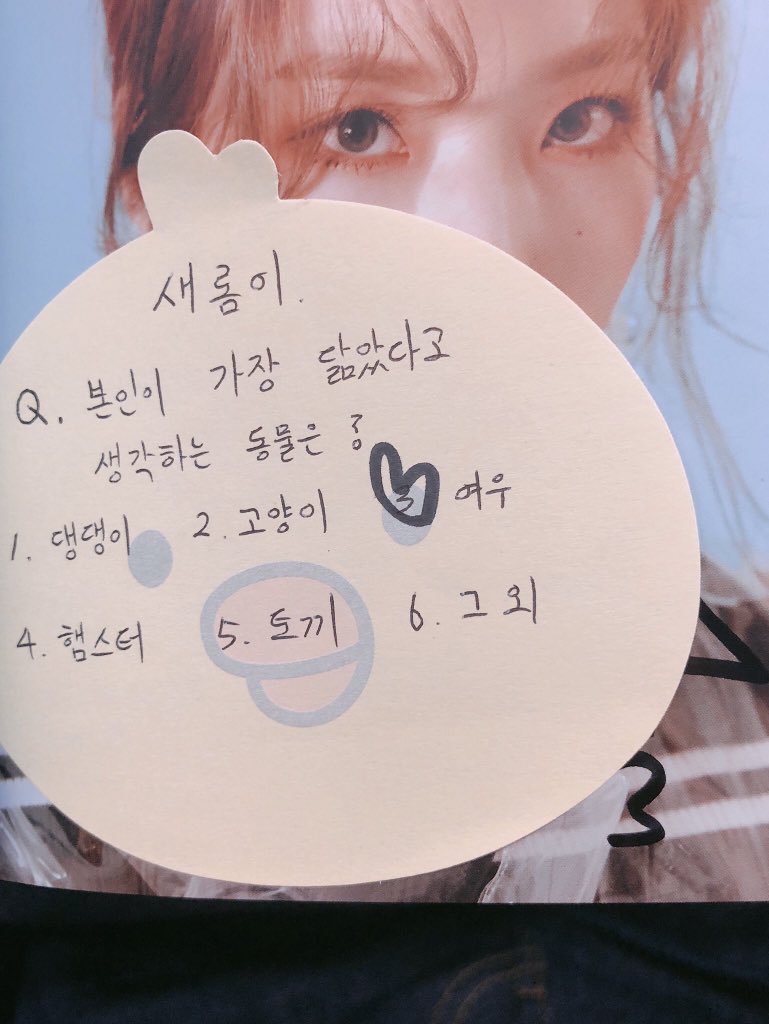 새롬이.
Q. 본인이 가장 닮았다고
생각하는 동물은?
1. 댕댕이 2. 고양이 3 여우
4. 햄스터 5. 토끼 6. 그 외